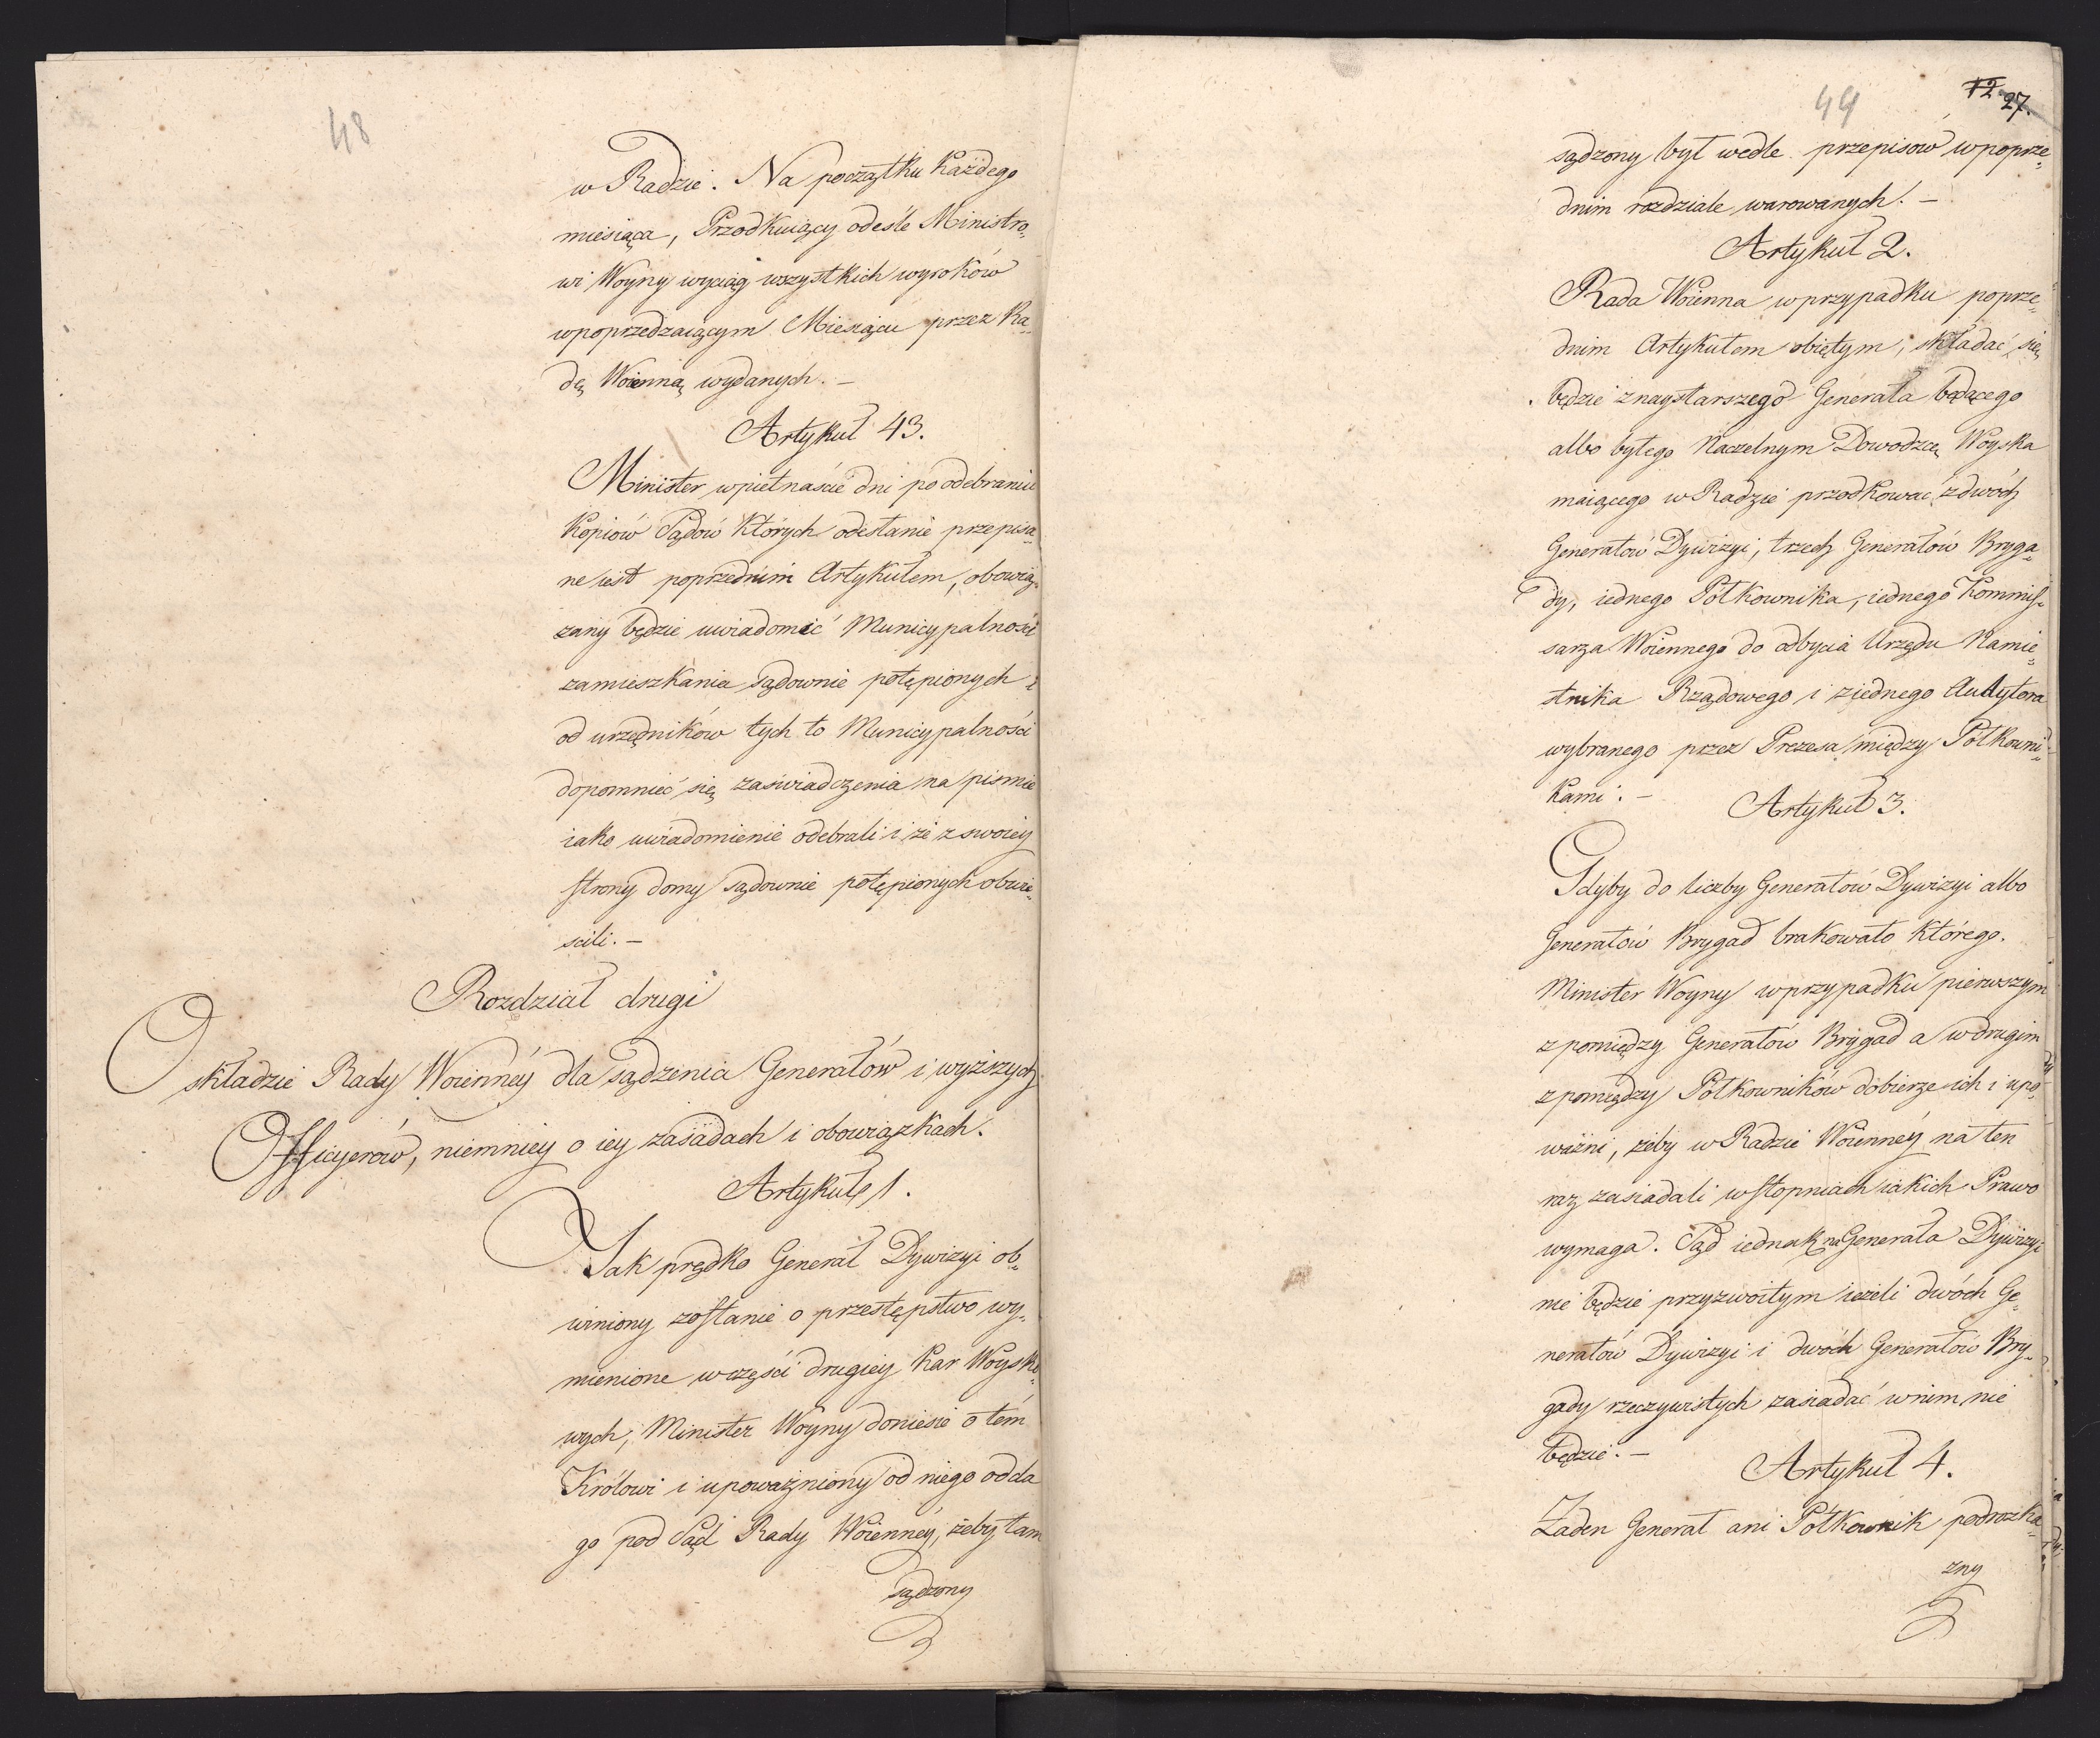 48
w Radzie. Na początku Każdego
miesiąca, Przodkuiący odeśle Ministro„
wi Woyny wyciąg wszystkich wyroków
wpoprzedzaiącym Miesiącu przez Ra„
dę Woienną wydanych. –
Artykuł 43.
Minister wpietnaście dni po odebraniu
Kopiów Sądów Których odesłanie przepisa„
ne iest poprzednim Artykułem, obowią„
zany będzie uwiadomić Municypalności
zamieszkania sądownie potępionych i
od urzędników tych to Municypalności
dopomnieć się zaświadczenia na pismie
iako uwiadomienie odebrali i że z swoiey
strony domy sądownie potępionych obwie„
scili. –
Rozdział drugi
O składzie Rady Woienney dla sądzenia Generałów i wyższych
Officyerów, niemniey o iey zasadach i obowiązkach.
Artykuł 1.
Jak prędko Generał Dywizyi ob„
winiony zostanie o przestępstwo wy„
mienione w części drugiey Kar Woysko„
wych, Minister Woyny doniesie o tem
Królowi i upoważniony od niego odda
go pod Sąd Rady Woienney, żeby tam
sądzony
49
12 27.
sądzony był wedle przepisów wpoprze„
dnim rozdziale warowanych. –
Artykuł 2.
Rada Woienna wprzypadku poprze„
dnim Artykułem obiętym, składać się
będzie znaystarszego Generała będącego
albo byłego Naczelnym Dowodzcą Woyska
maiącego w Radzie przodkować, z dwóch
Generałów Dywizyi, trzech Generałów Bryga„
dy, iednego Półkownika, iednego Kommis„
sarza Woiennego do odbycia Urzędu Namie„
stnika Rządowego i ziednego Audytora
wybranego przez Prezesa między Półkowni„
kami. –
Artykuł 3.
Gdyby do liczby Generałów Dywizyi albo
Generałów Brygad brakowało Którego.
Minister Woyny wprzypadku pierwszym
z pomiędzy Generałów Brygad a w drugim
z pomiędzy Półkowników dobierze ich i upo„
ważni, żeby w Radzie Woienney na ten
raz zasiadali wstopniach iakich Prawo
wymaga. Sąd iednak na Generała Dywizyi
nie będzie przyzwoitym ieżeli dwóch Ge„
nerałów Dywizyi i dwóch Generałów Bry„
gady rzeczywistych zasiadać wnim nie
będzie. –
Artykuł 4.
Żaden Generał ani Półkownik podrozka„
zny